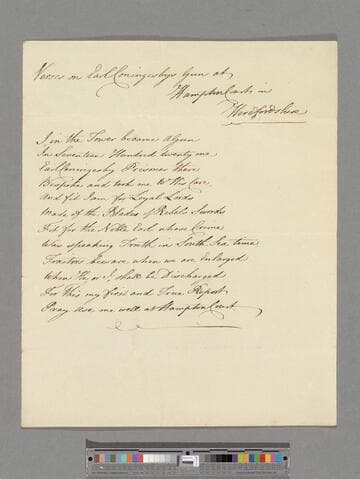 Verses on Earl Coningsbys Gun at
Hampton Court in
Herefordshire
I in the Tower became a Gun
In Seventeen Hundred twenty one
Earl Coningsby Prisoner there
Bespoke and took me to His Care
And fit I am for Loyal Lords
Made of the Blades of Rebel Swords
Fit for the Noble Earl whose Crime
Was speaking Truth in South Sea time
Traitors beware when we are enlarged
When He or I shall be Discharged
For this my first and True Report
Pray use me well at Hampton Court